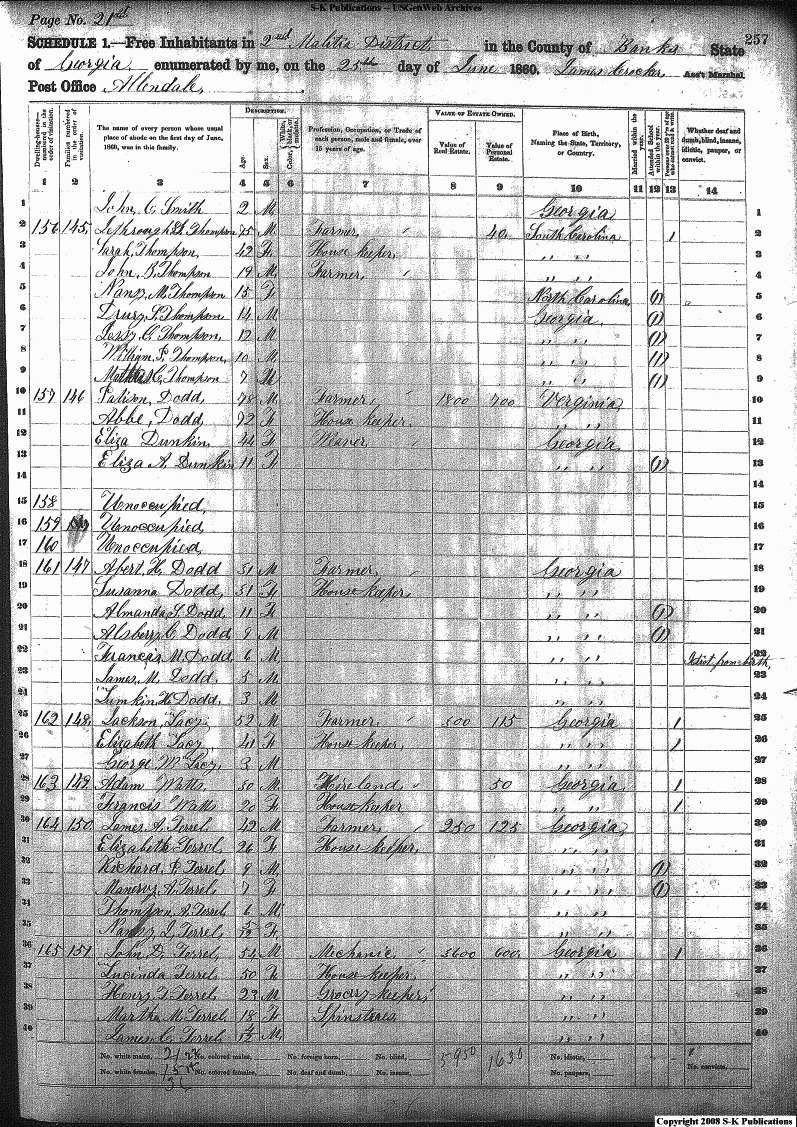 S-K Publications – USGenWeb Archives
Page No. 21st
257
SCHEDULE 1.—Free Inhabitants in 2nd Malitia District in the County of Banks State
of Georgia enumerated by me, on the 25th day of June 1860. James Crocker Ass't Marshal.
Post Office Allendale,
Dwelling-houses—numbered in the order of visitation. Families numbered in the order of visitation. The name of every person whose usual place of abode on the first day of June, 1860, was in this family. DESCRIPTION. Age. Sex. Color, {White, black, or mulatto. Profession, Occupation, or Trade of each person, male and female, over 15 years of age. VALUE OF ESTATE OWNED. Value of Real Estate. Value of Personal Estate. Place of Birth, Naming the State, Territory, or Country. Married within the year. Attended School within the year. Persons over 20 y'rs of age who cannot read & write. Whether deaf and dumb, blind, insane, idiotic, pauper, or convict.
1 2 3 4 5 6 7 8 9 10 11 12 13 14
1 John, C, Smith 2 M Georgia 1
2 156 145 Thompson M Farmer, 40 South Carolina 1 2
3 Sarah, Thompson, 42 F House keeper, " " 3
4 John, B, Thompson 19 M Farmer, " " 4
5 Nancy, M, Thompson 15 F North Carolina (1) 5
6 Drury, Thompson 14 M Georgia, (1) 6
7 C, Thompson, 12 M " " (1) 7
8 William, P, Thompson, 10 M " " (1) 8
9 C, Thompson 7 " " (1) 9
10 157 146 Dodd 78 M Farmer, 1800 700 Verginia, 10
11 Abbe, Dodd, F House keeper, " " 11
12 Eliza Dunkin, 44 F Weaver, Georgia 12
13 Eliza A. Dunkin 11 F " " (1) 13
14 14
15 158 Unoccupied, 15
16 159 Unoccupied, 16
17 160 Unoccupied, 17
18 161 147 H. Dodd 51 M Farmer, Georgia 18
19 Susanna Dodd, 51 F House keeper, " " 19
20 Almanda, Dodd, 11 F " " (1) 20
21 Alsberry, C Dodd 9 M " " (1) 21
22 Francis, M, Dodd, 6 M " " Idiot from birth 22
23 James, M, Dodd 5 M " " 23
24 Lumkin, H, Dodd, 3 M " " 24
25 162 148 Jackson, Lacy, 52 M Farmer, 115 Georgia 1 25
26 Elizabeth Lacy, 41 F House keeper, " " 1 26
27 George, W, Lacy, 3 M " " 27
28 163 149 Adam Watts 50 M Hireland, 50 Georgia 1 28
29 Francis Watts 20 F House keeper " " 1 29
30 164 150 James A, Terrel 42 M Farmer, 250 125 Georgia, 30
31 Elizabeth Terrel 26 F House keeper, " " 31
32 Richard, P, Terrel 9 M " " (1) 32
33 Manervy, A, Terrel, 7 F " " (1) 33
34 Thompson, A, Terrel 6 M " " 34
35 Nancy, Terrel, F " " 35
36 165 151 John D, Terrel 54 M Mechanic, 3600 600 Georgia 1 36
37 Lucinda Terrel 50 F House keeper, " " 37
38 Henry, T, Terrel 23 M Grocery keeper, " " 38
39 Martha M, Terrel 18 F " " 39
40 James C, Terrel M " " 40
No. white males, No. colored males, No. foreign born, No. blind, 5950 1630 No. idiotic,
No. white females, No. colored females, No. deaf and dumb, No. insane, No. paupers, No. convicts,
Copyright 2008 S-K Publications